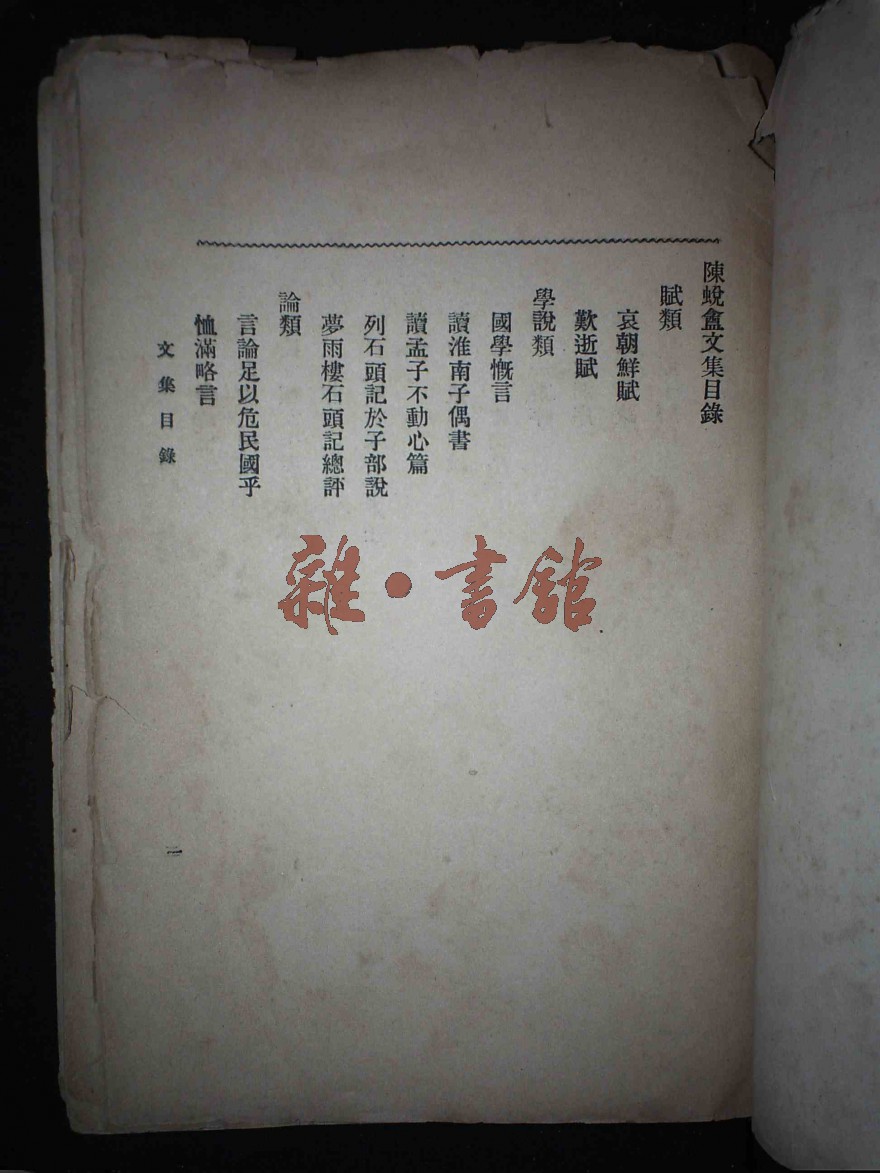 陳蛻盦文集目錄
賦類
哀朝鮮賦
歎逝賦
學說類
國學慨言
讀淮南子偶書
讀孟子不動心篇
列石頭記於子部說
夢雨樓石頭記總評
論類
言論足以危民國乎
恤滿略言
文集目錄
二
雜·書館